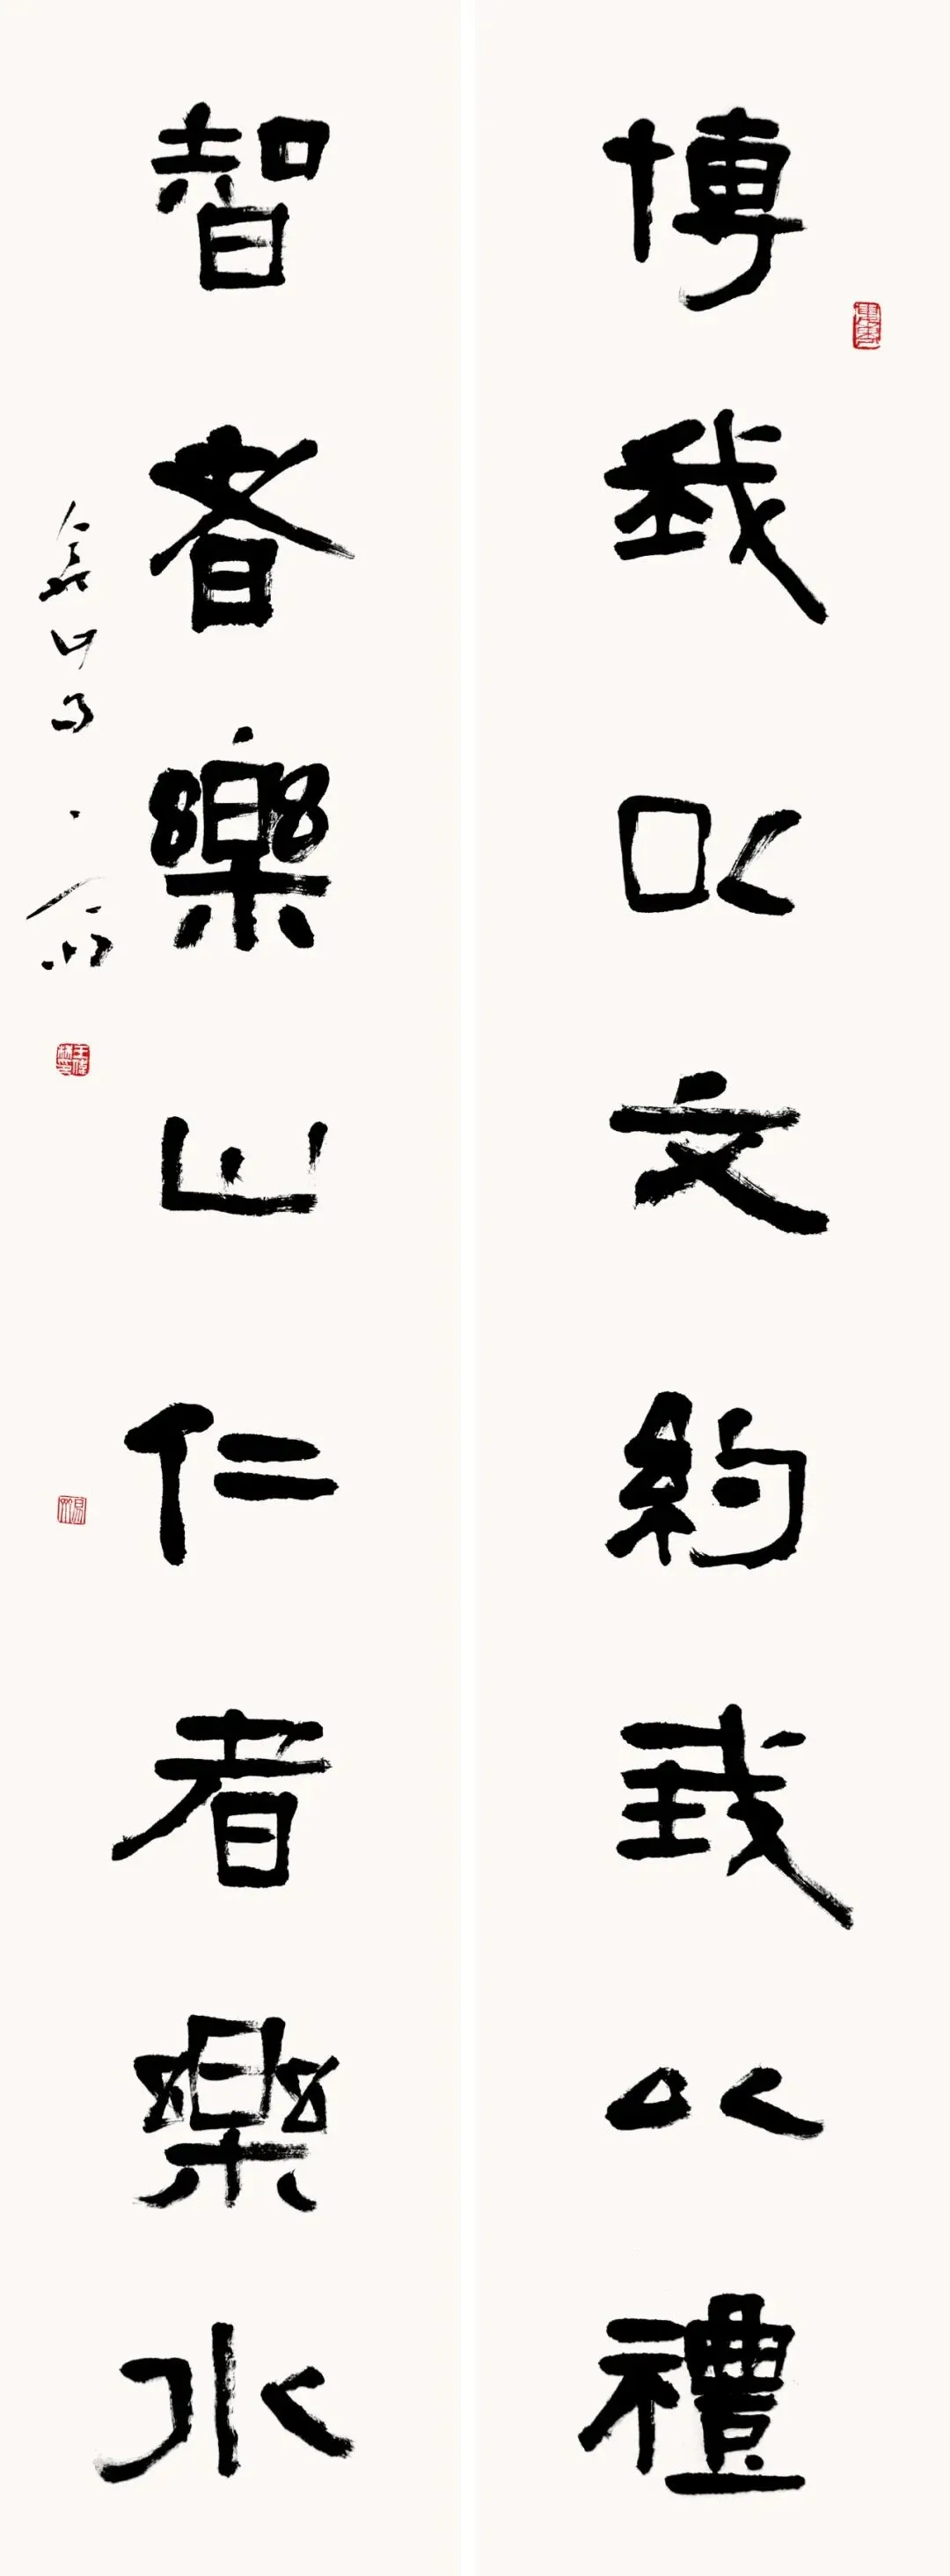 博我以文約我以禮
智者樂山仁者樂水